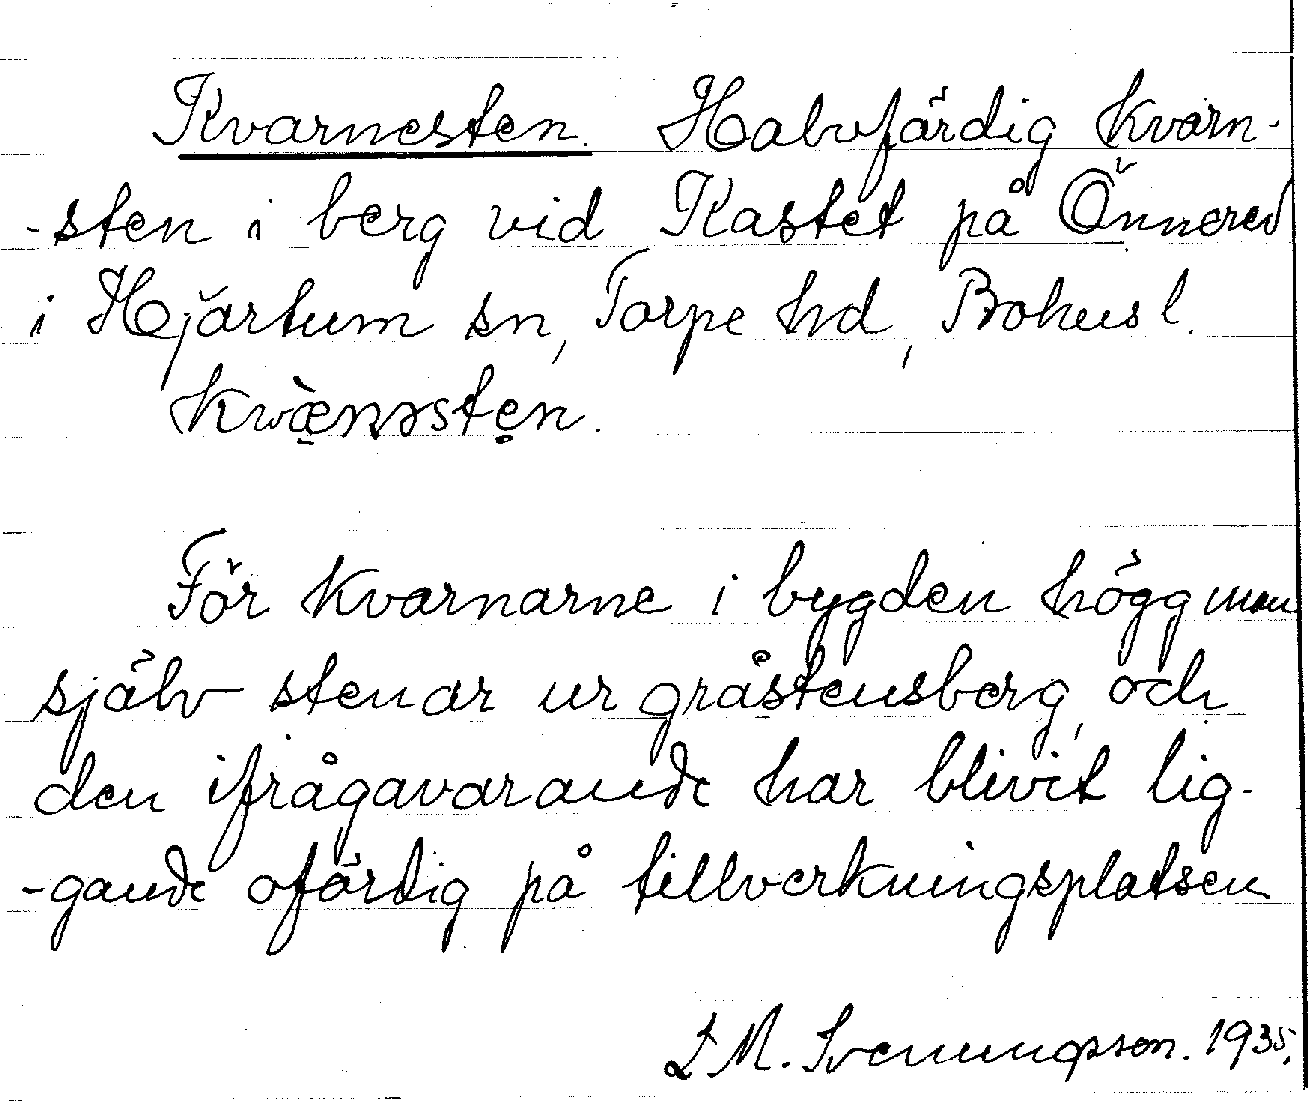 Kvarnesten. Halvfärdig kvarn-
-sten i berg vid Kastet på Önnered
i Hjärtum sn, Torpe hd, Bohusl.
kwæ̀nnsten.
För kvarnarne i bygden högg man
själv stenar ur gråstensberg, och
den ifrågavarande har blivit lig-
-gande ofärdig på tillverkningsplatsen
L M. Svenungsson. 1935.